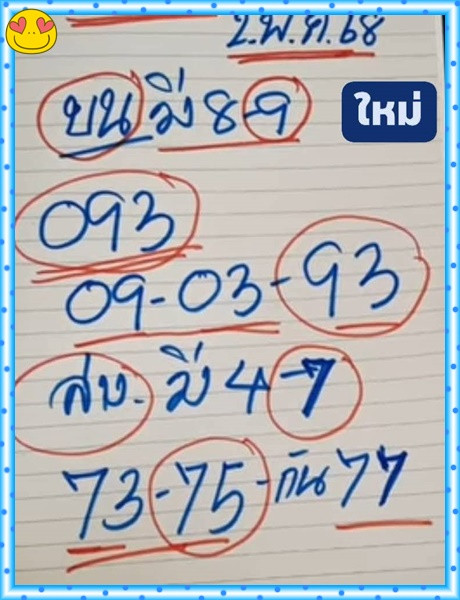 2.พ.ค.68
ใหม่
บน มี 8-9
093
09-03-93
ล่าง. มี 4-7
73-75-กัน 77